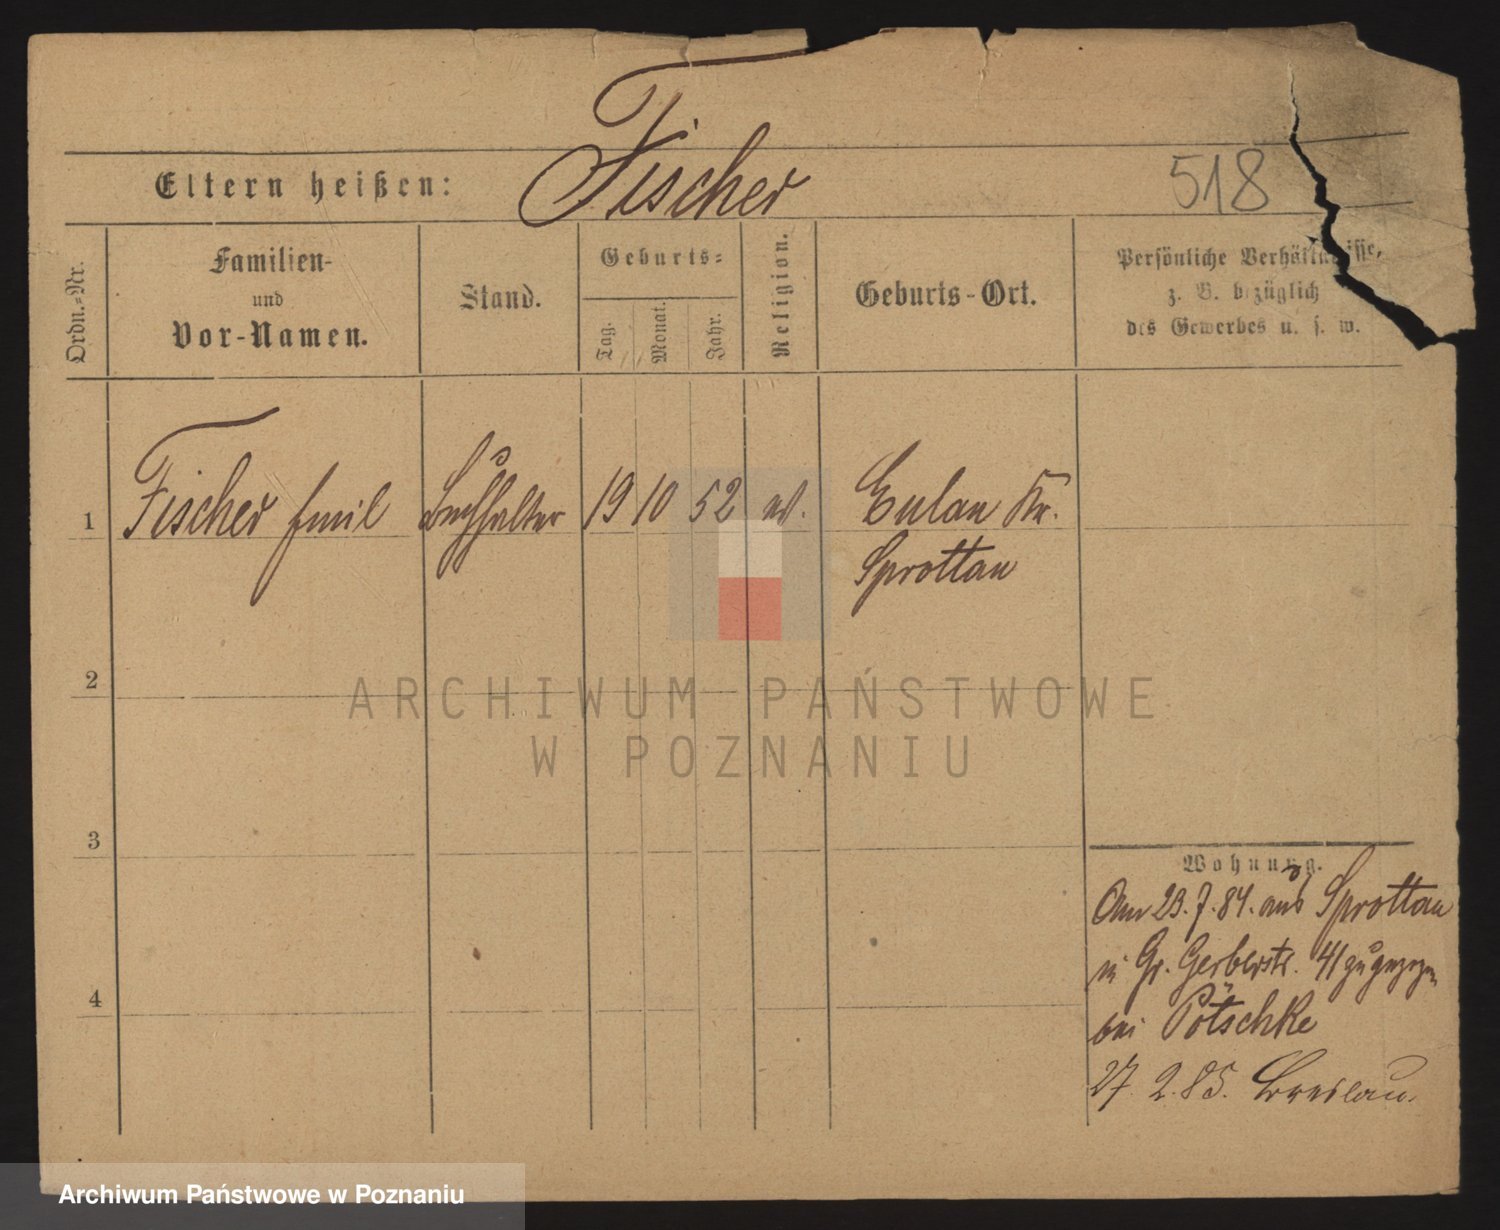 Fischer
518
Eltern heißen:
Ordn.-Nr.
Familien-
und
Vor-Namen.
Stand.
Geburts-
Tag.
Monat.
Jahr.
Religion.
Geburts-Ort.
Persönliche Verhältnisse,
z. B. bezüglich
des Gewerbes u. s. w.
1 Fischer Emil Buchhalter 19 10 52 ev. Eulau Kr.
Sprottau
2
3
4
Wohnung.
Am 23.7.84. aus Sprottau
in Gr. Gerberstr. 41 zugezogen
bei Pötschke
27. 2. 85. Breslau.
ARCHIWUM PAŃSTWOWE
W POZNANIU
Archiwum Państwowe w Poznaniu